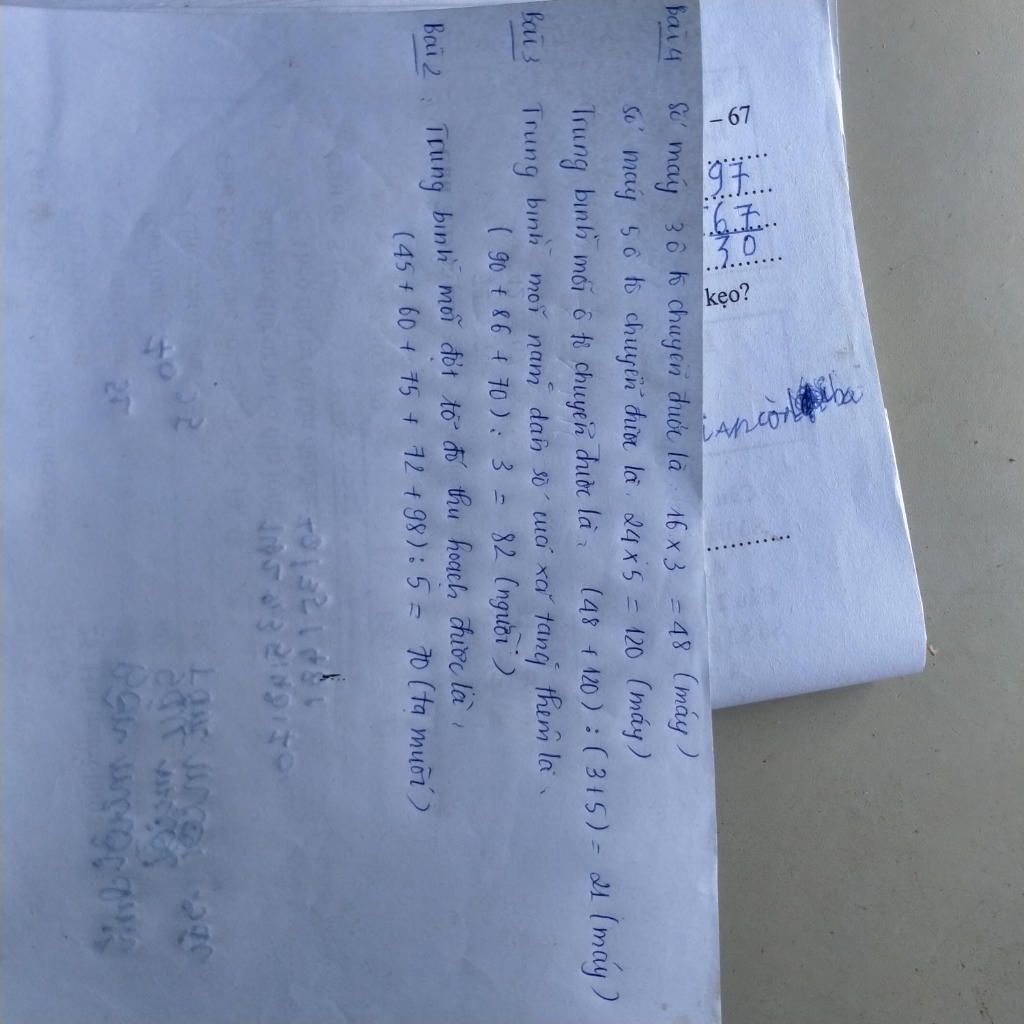 – 67
97
67
30
kẹo?
Bài 4 số máy 3 ô tô chuyển được là. 16 × 3 = 48 (máy)
số máy 5 ô tô chuyển được là. 24 × 5 = 120 (máy)
Trung bình mỗi ô tô chuyển được là, (48 + 120) : (3+5) = 21 (máy)
Bài 3 Trung bình mỗi năm dân số mỗi xã tăng thêm là,
(90 + 86 + 70) : 3 = 82 (người)
Bài 2: Trung bình mỗi đợt tổ đó thu hoạch được là,
(45 + 60 + 75 + 72 + 98) : 5 = 70 (tạ muối)